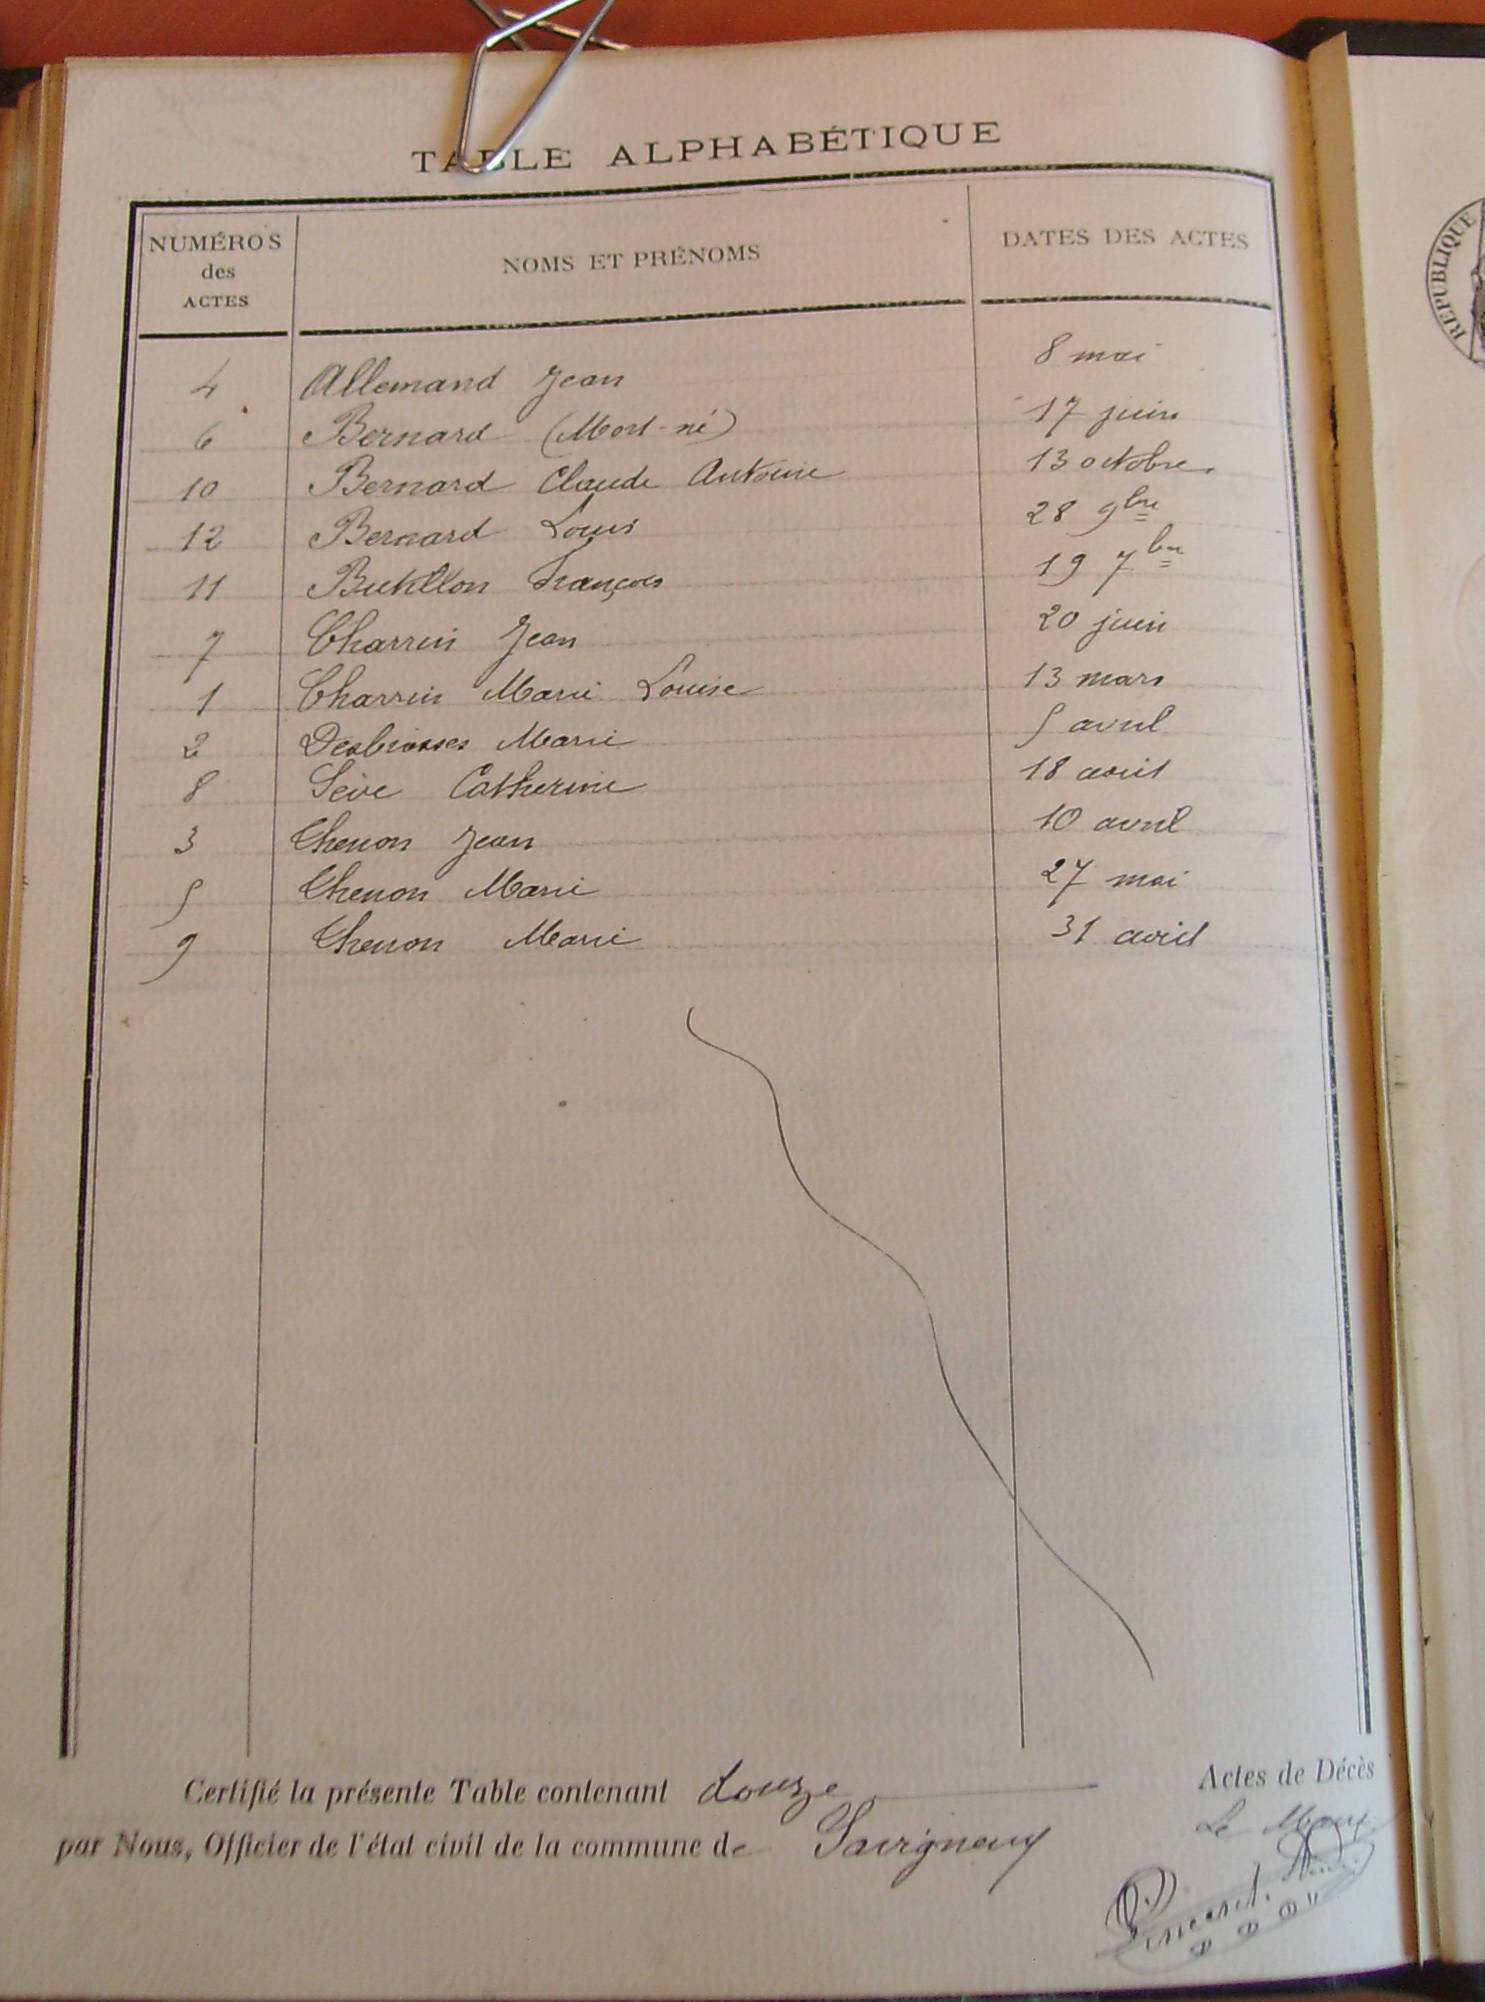 TABLE ALPHABÉTIQUE
NUMÉROS des ACTES NOMS ET PRÉNOMS DATES DES ACTES
4 Allemand Jean 8 mai
6 Bernard (Mort-né) 17 juin
10 Bernard Claude Antoine 13 octobre
12 Bernard Louis 28 9bre
11 Butillon François 19 7bre
7 Charrin Jean 20 juin
1 Charrin Marie Louise 13 mars
2 Desbrosses Marie 5 avril
8 Sève Catherine 18 août
3 Thenon Jean 10 avril
5 Thenon Marie 27 mai
9 Thenon Marie 31 août
Certifié la présente Table contenant douze Actes de Décès
par Nous, Officier de l'état civil de la commune de Savigneux
Le Maire
REPUBLIQUE